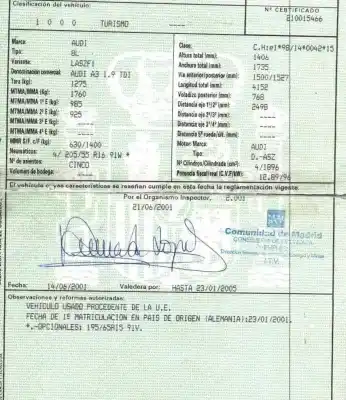 Clasificación del vehículo:
Nº CERTIFICADO
E10015466
1 0 0 0 TURISMO
Marca: AUDI
Tipo: 8L
Variante: LASZF1
Denominación comercial: AUDI A3 1.9 TDI
Tara (kg): 1275
MTMA/MMA (kg) 1760
MTMA/MMA 1º E (kg) 985
MTMA/MMA 2º E (kg) 925
MTMA/MMA 3º E (kg)
MTMA/MMA 4º E (kg)
630/1400
Neumáticos: 4/ 205/55 R16 91W *
Nº de asientos: CINCO
Volumen de bodega:
Clase: C.Hie1*98/14*0042*15
Altura total (mm): 1406
Anchura total (mm): 1735
Vía anterior/posterior (mm): 1500/1527
Longitud total (mm) 4152
Voladizo posterior (mm) 768
Distancia eje 1º/2º (mm) 2498
Distancia eje 2º/3º (mm)
Distancia eje 3º/4º (mm)
Distancia 5ª rueda/últ. (mm)
Motor: Marca: AUDI
Motor: Tipo: D.-ASZ
Nº Cilindros/Cilindrada (cm³) 4/1896
Potencia fiscal/real (C.V.F/kW) 12,89/96
El vehículo cuyas características se reseñan cumple en esta fecha la reglamentación vigente
Por el Organismo Inspector, 2.001
21/06/2001
Comunidad de Madrid
I.T.V.
Fecha: 14/06/2001 Valedera por: HASTA 23/01/2005
Observaciones y reformas autorizadas:
VEHICULO USADO PROCEDENTE DE LA U.E.
FECHA DE 1ª MATRICULACION EN PAIS DE ORIGEN (ALEMANIA):23/01/2001.
*.-OPCIONALES: 195/65R15 91V.